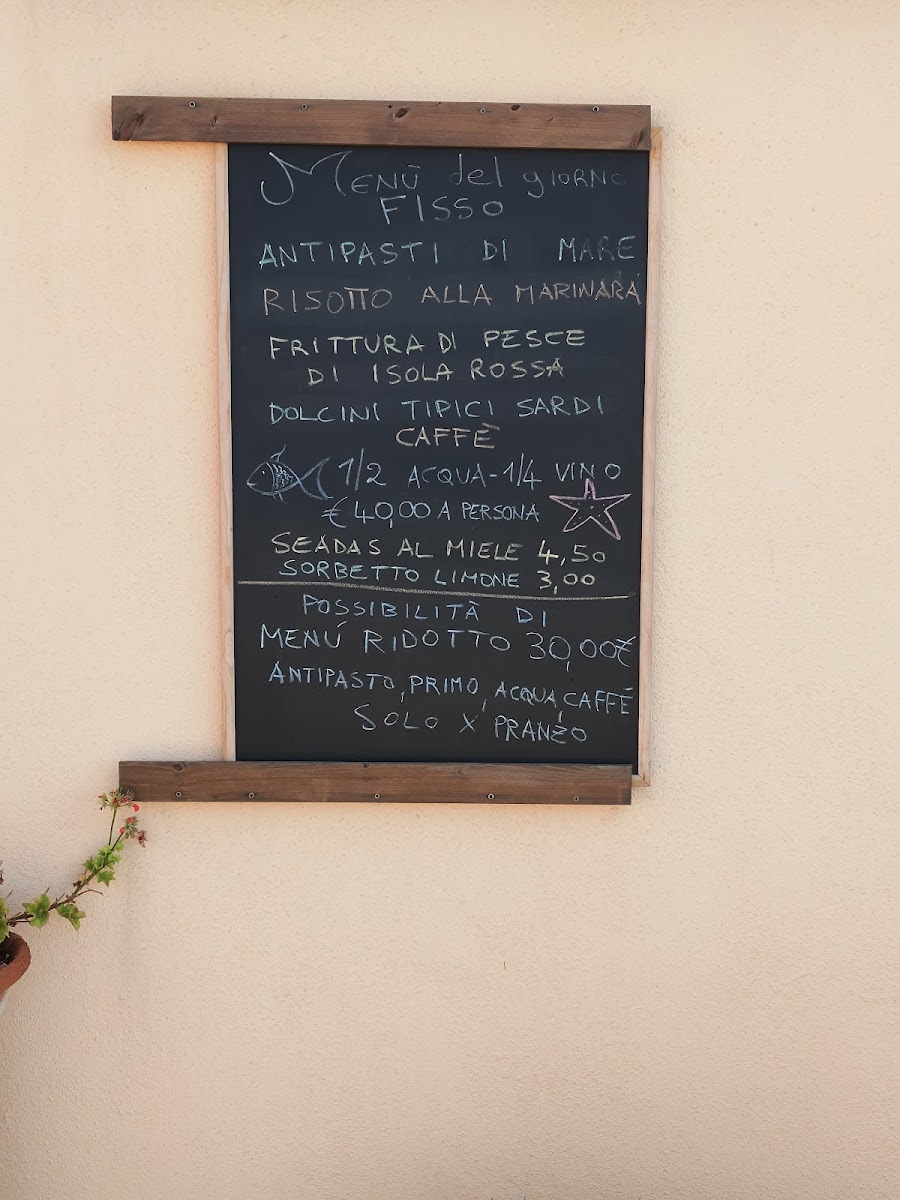 MENÙ del GIORNO
FISSO
ANTIPASTI DI MARE
RISOTTO ALLA MARINARA
FRITTURA DI PESCE
DI ISOLA ROSSA
DOLCINI TIPICI SARDI
CAFFÈ
1/2 ACQUA - 1/4 VINO
€ 40,00 A PERSONA
SEADAS AL MIELE 4,50
SORBETTO LIMONE 3,00
POSSIBILITÀ DI
MENÚ RIDOTTO 30,00€
ANTIPASTO, PRIMO, ACQUA, CAFFÈ
SOLO X PRANZO